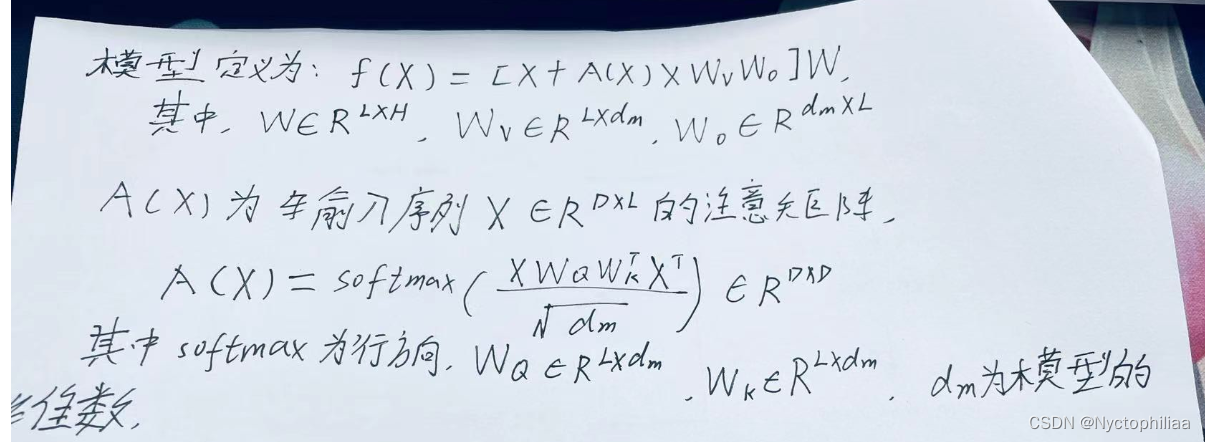 模型定义为: f(X) = [X + A(X) X W_V W_O] W,
其中, W∈R^{L×H}, W_V∈R^{L×dm}, W_O∈R^{dm×L}
A(X)为输入序列 X∈R^{D×L} 的注意矩阵,
A(X) = softmax( \frac{X W_Q W_K^T X^T}{\sqrt{dm}} ) ∈R^{D×D}
其中 softmax 为行方向, W_Q∈R^{L×dm}, W_K∈R^{L×dm}, dm为模型的
维数,
CSDN @Nyctophiliaa